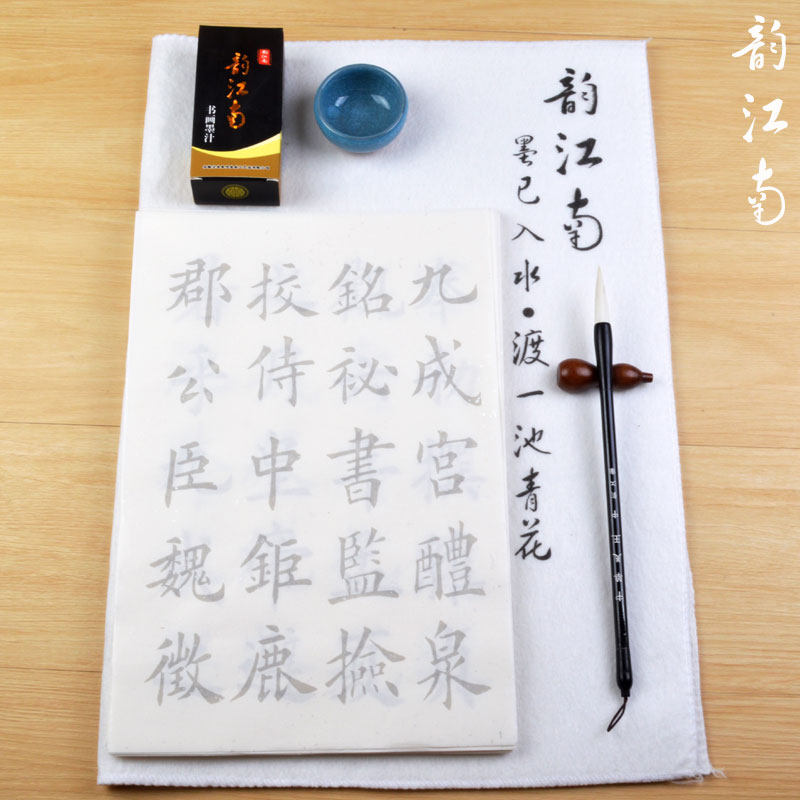 韵江南
书画墨汁
韵江南
墨已入水•渡一池青花
韵江南
九成宫醴泉
銘祕書監撿
挍侍中鉅鹿
郡公臣魏徵